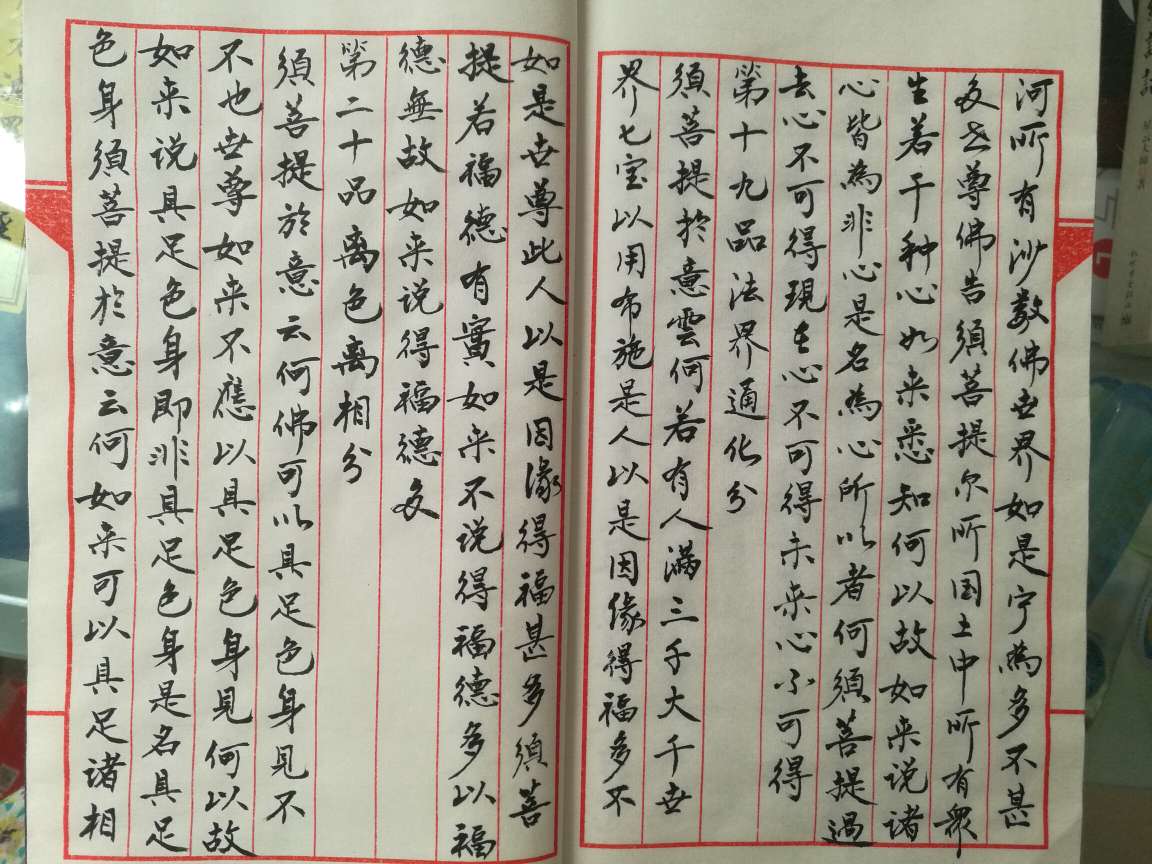 河所有沙数佛世界如是宁為多不甚
多世尊佛告須菩提尔所国土中所有眾
生若干种心如来悉知何以故如来说诸
心皆為非心是名為心所以者何須菩提過
去心不可得現在心不可得未来心不可得
第十九品法界通化分
須菩提於意雲何若有人滿三千大千世
界七宝以用布施是人以是因缘得福多不
如是世尊此人以是因缘得福甚多須菩
提若福德有實如来不说得福德多以福
德無故如来说得福德多
第二十品离色离相分
須菩提於意云何佛可以具足色身見不
不也世尊如来不應以具足色身見何以故
如来说具足色身即非具足色身是名具足
色身須菩提於意云何如来可以具足诸相